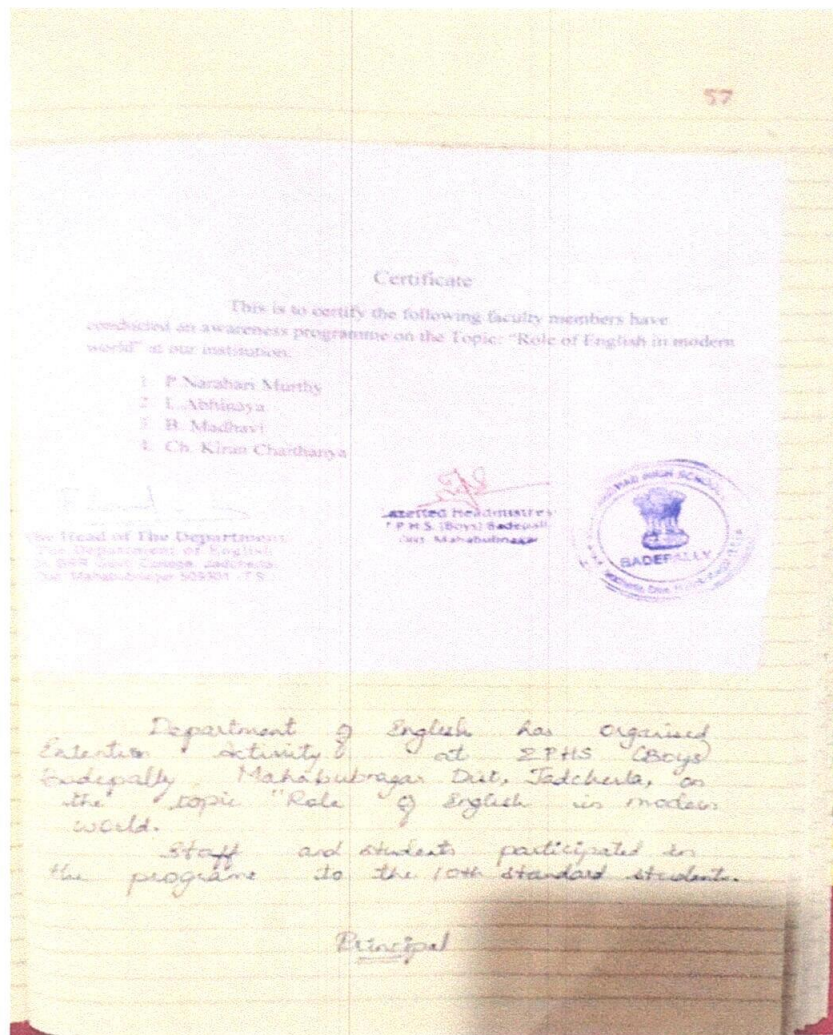 57
Certificate
This is to certify the following faculty members have
conducted an awareness programme on the Topic: "Role of English in modern
world" at our institution.
1. P Narahari Murthy
2. L. Abhinaya
3. B. Madhavi
4. Ch. Kiran Chaithanya
Head of The Department
The Department of English
BRR Govt College, Jadcherla
Dist. Mahabubnagar 509301 T.S.
Gazetted Headmistres
Z P H S. (Boys) Badepall
Dist. Mahabubnagar
HIGH SCHOOL
BADEPALLY
Department of English has organised
Extention Activity at ZPHS (Boys)
Badepally Mahabubnagar Dist, Jadcherla, on
the topic "Role of English in modern
world.
Staff and students participated in
the programe to the 10th standard students.
Principal